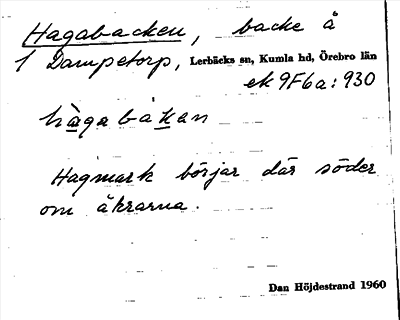 Hagabacken, backe å
1 Dampetorp, Lerbäcks sn, Kumla hd, Örebro län
ek 9F6a:930
hàgabákan
Hagmark börjar där söder
om åkrarna.
Dan Höjdestrand 1960